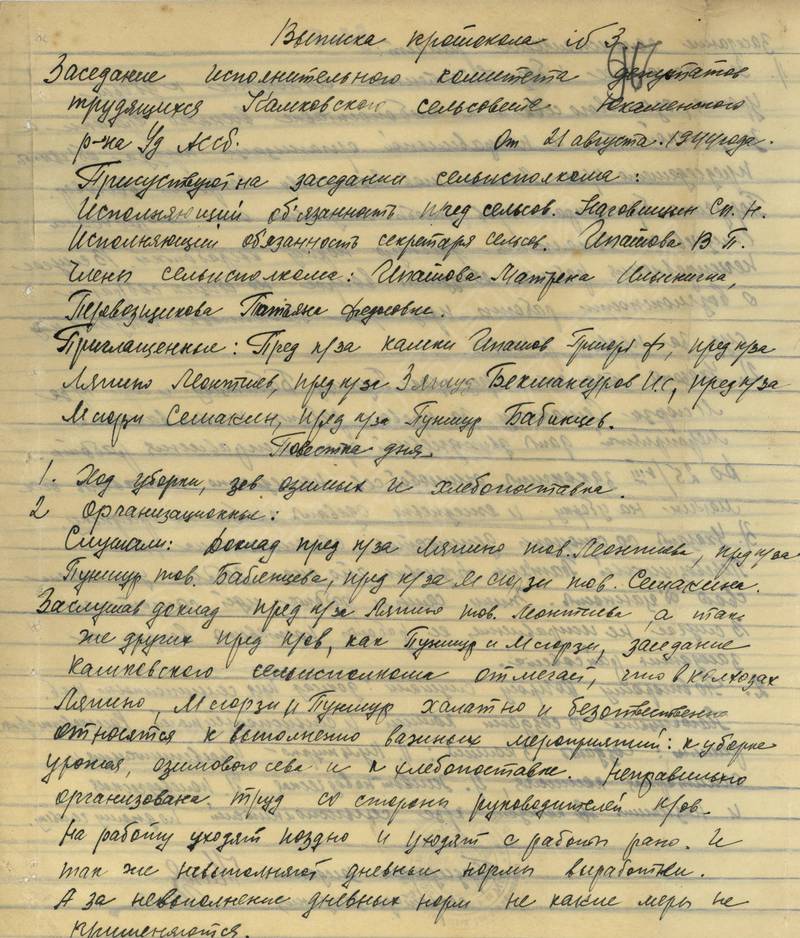 Выписка протокола № 3
Заседание исполнительного комитета депутатов
трудящихся Камковского сельсовета Юкаменского
р-на Уд Ассб. От 21 августа. 1944 года.
Присуствуют на заседании сельисполкома:
Исполняющий об'язанность пред сельсов. Наговицын Сп. Н.
Исполняющий обязанность секретаря сельсов. Ипатова В П.
Члены сельисполкома: Ипатова Матрена
Перевозщикова Татьяна
Приглащенные: Пред к/за камки Ипатов Григорь ф, пред к/за
Ляпино Леонтиев, пред к/за Бекмансуров И.С, пред к/за
Семакин, пред к/за Пуншур Бабинцев.
Повестка дня.
1. Ход уборки, сев озимых и хлебопоставка.
2 Организационные:
Слушали: доклад пред к/за Ляпино тов. Леонтиева, пред к/за
Пуншур тов. пред к/за тов. Семакина.
Заслушав доклад пред к/за Ляпино тов. Леонтиева а так
же других пред к/ов, как Пуншур и заседание
камковского сельисполкома отмечает, что в колхозах
Ляпино, и Пуншур халатно и
относятся к выполнению важных мероприятий: к уборке
урожая, озимового сева и к хлебопоставке. Неправильно
организована труд со стороны руководителей к/ов.
На работу уходят поздно и уходят с работы рано. И
так же невыполняют дневные нормы выработки.
А за невыполнение дневных норм не какие меры не
применяются.